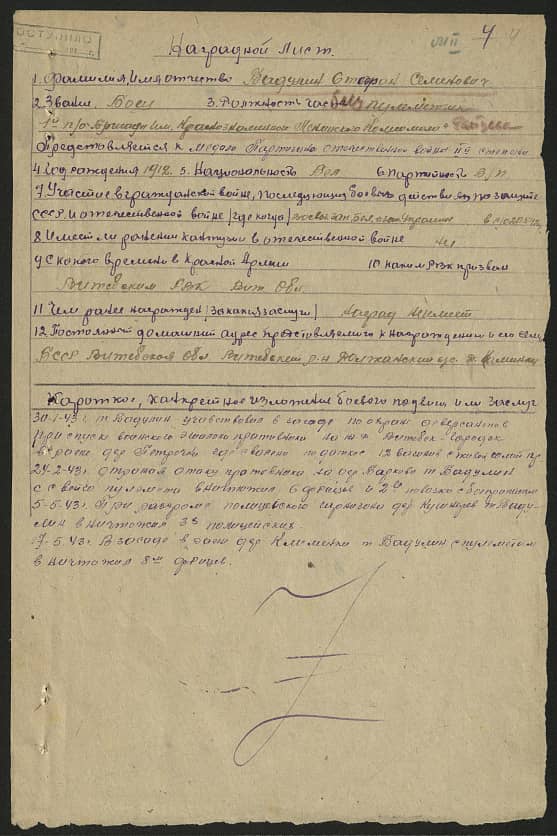 ПОСТУПИЛО
VII
4
Наградной Лист.
1. Фамилия, имя, отчество Бадулин Семенович
2. Звание Боец 3. Должность часть пулеметчик
1й п/о Бригады им. Краснознаменного Ленинского Комсомола
Представляется к медали Партизану отечественной войны IIй степени
4. Год рождения 1912. 5. Национальность 6. Партийность Б/п
7. Участие в гражданской войне, последующих боевых действиях по защите
СССР и отечественной войне /где когда/
8. Имеет ли ранения контузии в отечественной войне
9. С какого времени в Красной Армии 10. Каким РВК призван
Витебским РВК Вит. Обл.
11. Чем ранее награжден /за какие заслуги/ наград не имеет
12. Постоянный домашний адрес представляемого к награждению и его семьи
БССР Витебская Обл. Витебский р-н
Краткое, конкретное изложение боевого подвига или заслуг
30-1-43 г. т Бадулин участвовал в засаде по охране диверсантов
при спуске эшелона противника на ж.д. Витебск городок
в районе дер
24-2-43 г. отражая атаку противника т Бадулин
с своего пулемета вничтожил 6 фрицев и 2 повозки с
5-5-43 г. При разгроме полицевского гарнизона дер т Баду-
лин вничтожил 3х полицейских.
7.5.43 г. В засаде в раене дер Клименки т Бадулин с пулеметом
вничтожил 8м фрицев.